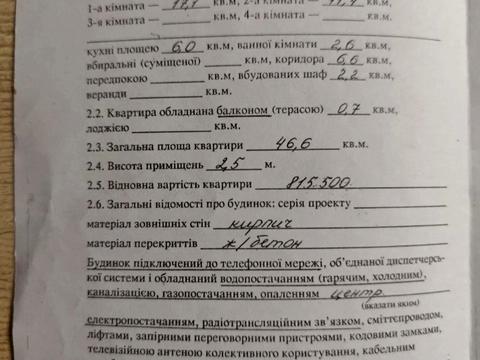 1-а кімната — 17,1 кв.м, 2-а кімната — 11,4 кв.м,
3-я кімната — кв.м, 4-а кімната — кв.м.
кухні площею 6,0 кв.м, ванної кімнати 2,6 кв.м,
вбиральні (суміщеної) кв.м, коридора 6,6 кв.м,
передпокою кв.м, вбудованих шаф 2,2 кв.м,
веранди кв.м.
2.2. Квартира обладнана балконом (терасою) 0,7 кв.м,
лоджією кв.м.
2.3. Загальна площа квартири 46,6 кв.м.
2.4. Висота приміщень 2,5 м.
2.5. Відновна вартість квартири 815.500
2.6. Загальні відомості про будинок: серія проекту
матеріал зовнішніх стін кирпич
матеріал перекриттів ж/бетон
Будинок підключений до телефонної мережі, об'єднаної диспетчерсь-
кої системи і обладнаний водопостачанням (гарячим, холодним),
каналізацією, газопостачанням, опаленням центр.
(вказати яким)
електропостачанням, радіотрансляційним зв'язком, сміттєпроводом,
ліфтами, запірними переговорними пристроями, кодовими замками,
телевізійною антеною колективного користування, кабельним